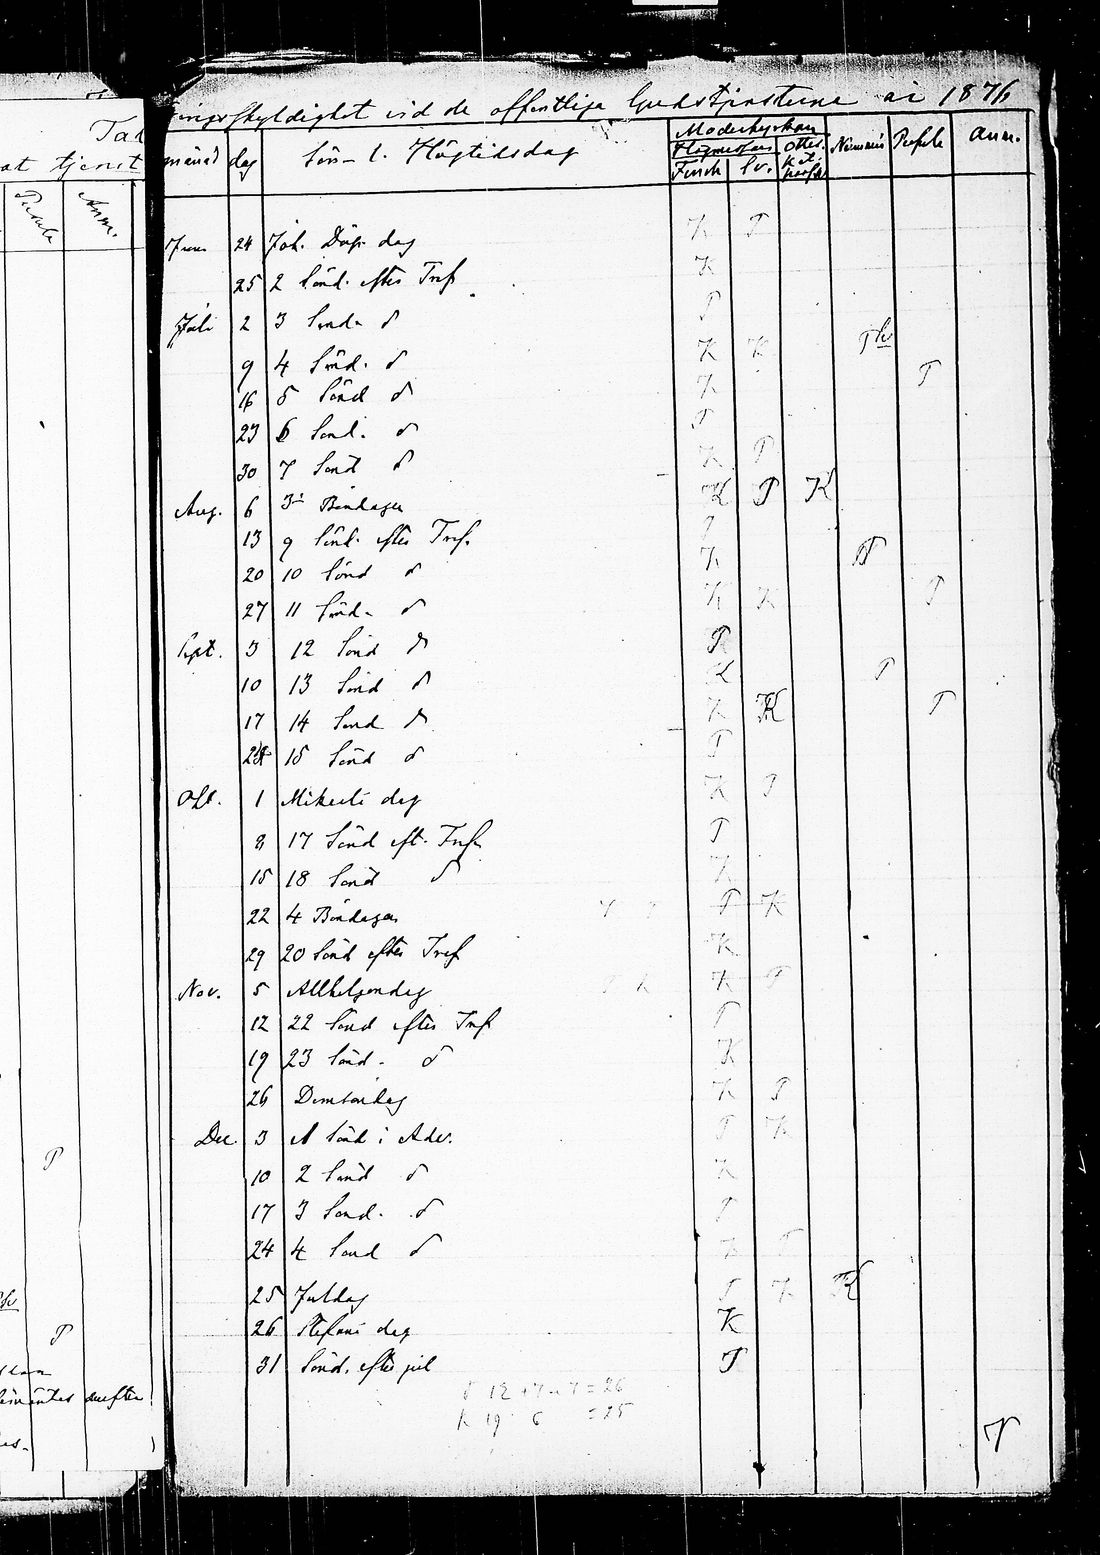 Tat
at tjenst
Anm.
P
P
derefter
skyldighet vid de offentliga Gudstjensterne år 1876
månad dag Sön- l. Högtidsdag Moderkyrkan Högmessan Finsk Sv. Anm.
Juni 24 Joh. Döp. dag K P
25 2 Sönd. efter Tref K
Juli 2 3 Sönd. d P
9 4 Sönd. d K K
16 5 Sönd d K P
23 6 Sönd. d P
30 7 Sönd d K P
Aug. 6 3e Böndagen K P K
13 9 Sönd. efter Tref. P
20 10 Sönd d K P
27 11 Sönd. d K K P
Sept. 3 12 Sönd d P
10 13 Sönd d K P
17 14 Sönd d K K P
24 15 Sönd d P
Okt. 1 Mikaeli dag K P
8 17 Sönd eft. Tref. P
15 18 Sönd d K
22 4 Böndagen P K
29 20 Sönd efter Tref K
Nov. 5 Allhelgondag P K K P
12 22 Sönd efter Tref P
19 23 Sönd. d K
26 Domsöndag K P
Dec 3 1 Sönd i Adv. P K
10 2 Sönd d K
17 3 Sönd. d P
24 4 Sönd d K P
25 Juldag P K K
26 Stefani dag K
31 Sönd. efter jul P
= 26
K 19 6 = 25